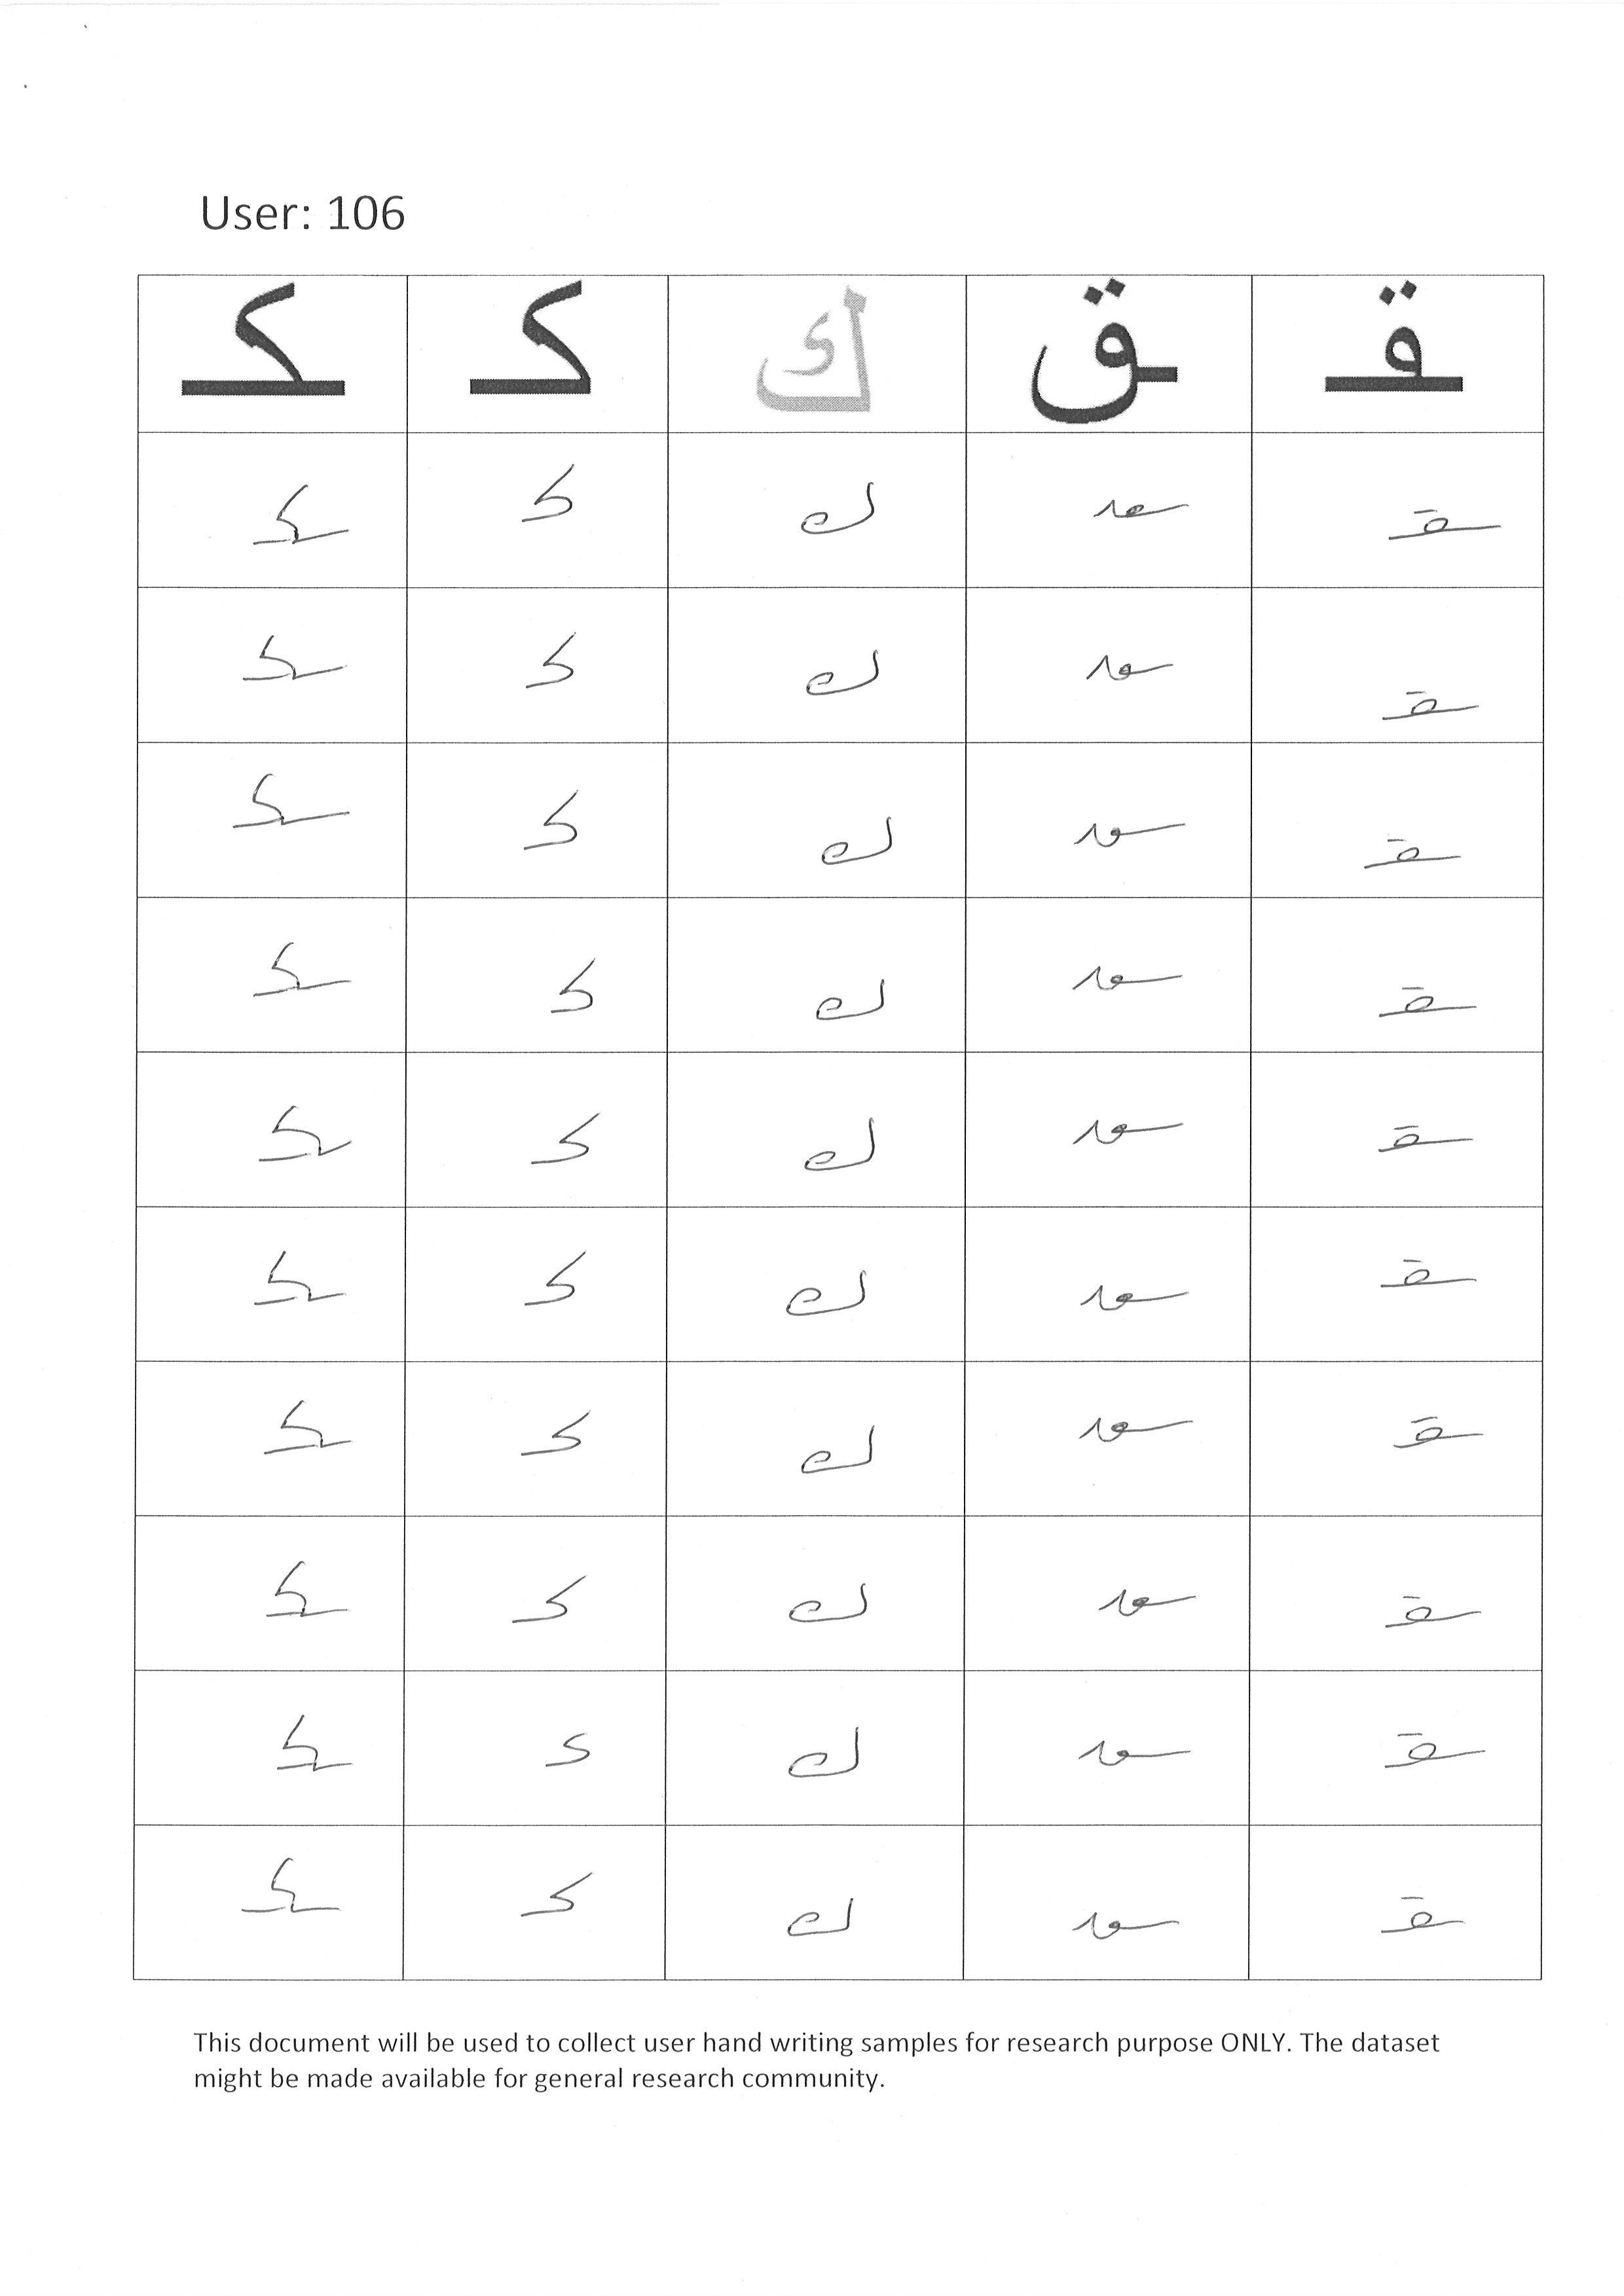 User: 106
ـقـ ـق ك كـ ـكـ
ـقـ ـق ك كـ ـكـ
ـقـ ـق ك كـ ـكـ
ـقـ ـق ك كـ ـكـ
ـقـ ـق ك كـ ـكـ
ـقـ ـق ك كـ ـكـ
ـقـ ـق ك كـ ـكـ
ـقـ ـق ك كـ ـكـ
ـقـ ـق ك كـ ـكـ
ـقـ ـق ك كـ ـكـ
ـقـ ـق ك كـ ـكـ
This document will be used to collect user hand writing samples for research purpose ONLY. The dataset
might be made available for general research community.